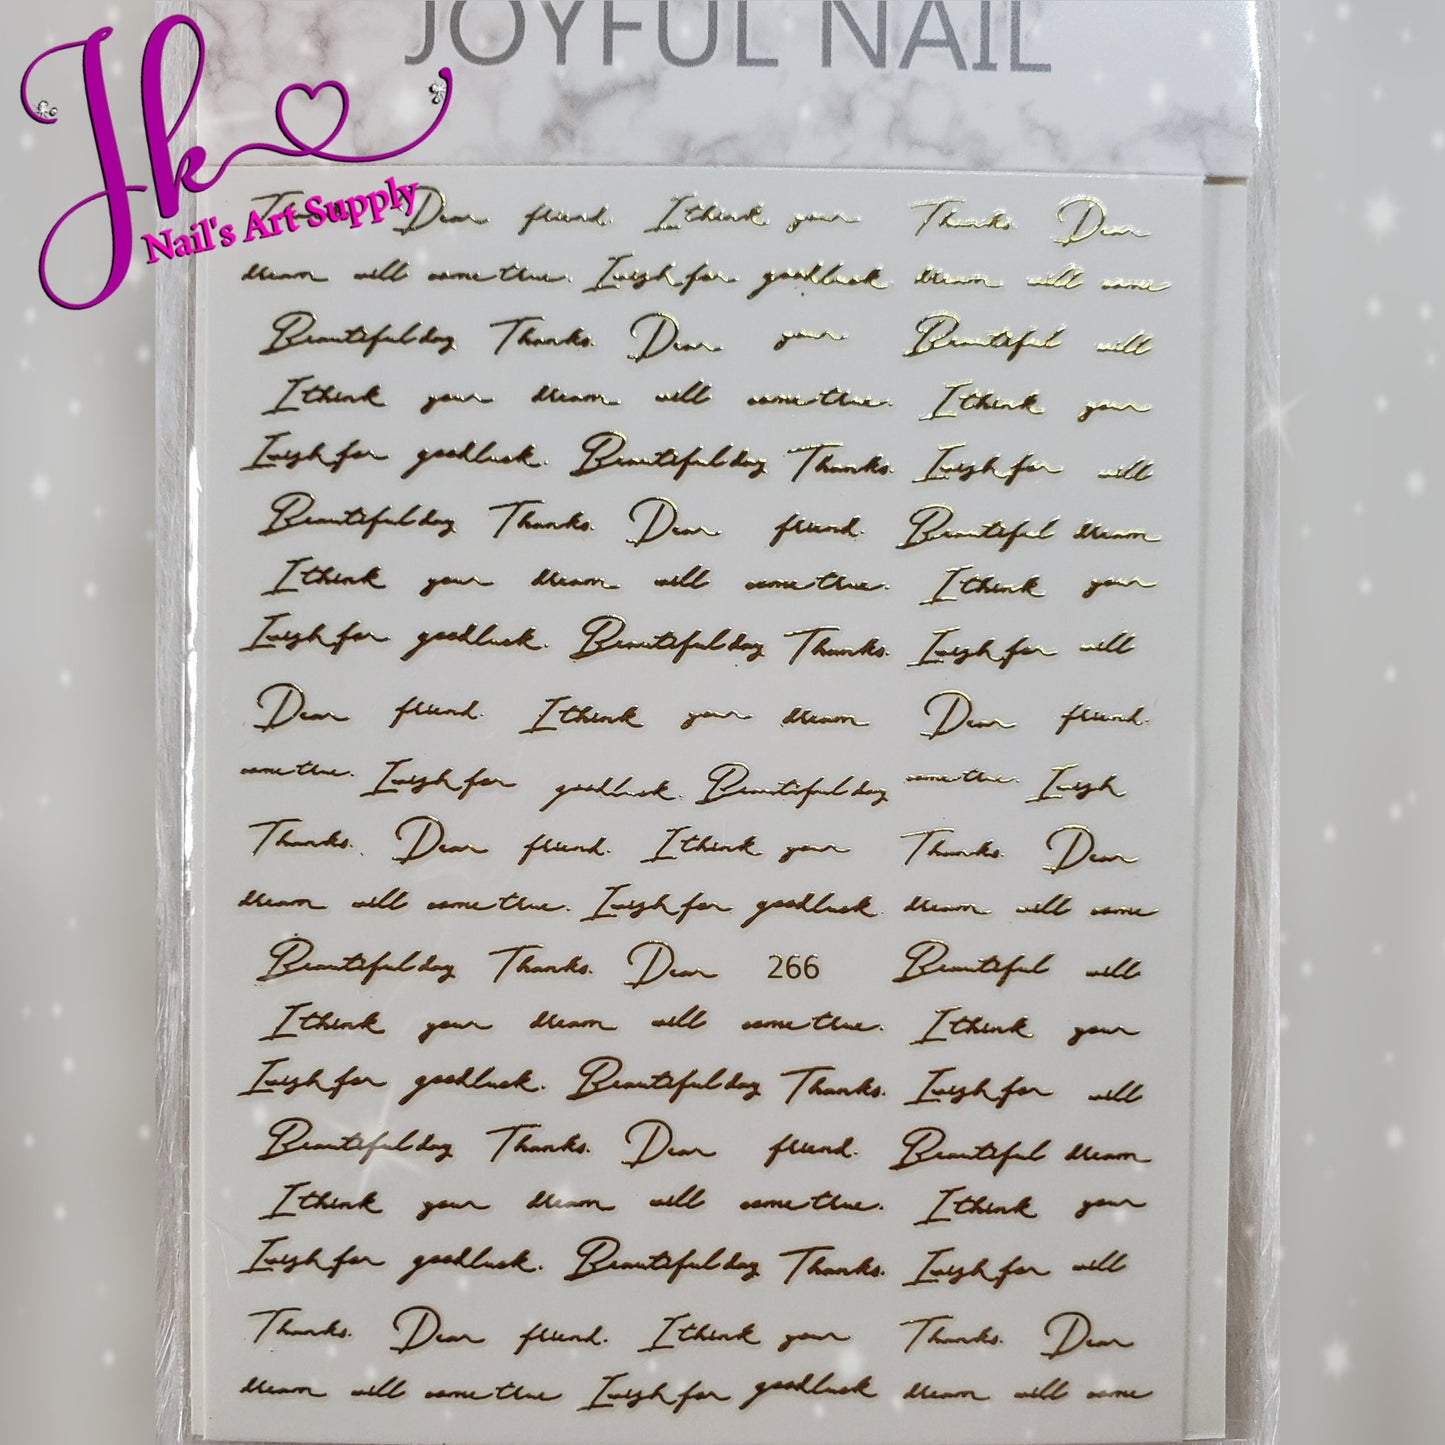 JOYFUL NAIL
Jk
Nail's Art Supply
Dear friend. I think your Thanks. Dear
dream will come true. I wish for good luck. dream will come
Beautiful day Thanks. Dear your Beautiful will
I think your dream will come true. I think your
I wish for good luck. Beautiful day Thanks. I wish for will
Beautiful day Thanks. Dear friend. Beautiful dream
I think your dream will come true. I think your
I wish for good luck. Beautiful day Thanks. I wish for will
Dear friend. I think your dream Dear friend.
come true. I wish for good luck. Beautiful day come true. I wish
Thanks. Dear friend. I think your Thanks. Dear
dream will come true. I wish for good luck. dream will come
Beautiful day Thanks. Dear 266 Beautiful will
I think your dream will come true. I think your
I wish for good luck. Beautiful day Thanks. I wish for will
Beautiful day Thanks. Dear friend. Beautiful dream
I think your dream will come true. I think your
I wish for good luck. Beautiful day Thanks. I wish for will
Thanks. Dear friend. I think your Thanks. Dear
dream will come true I wish for good luck dream will come